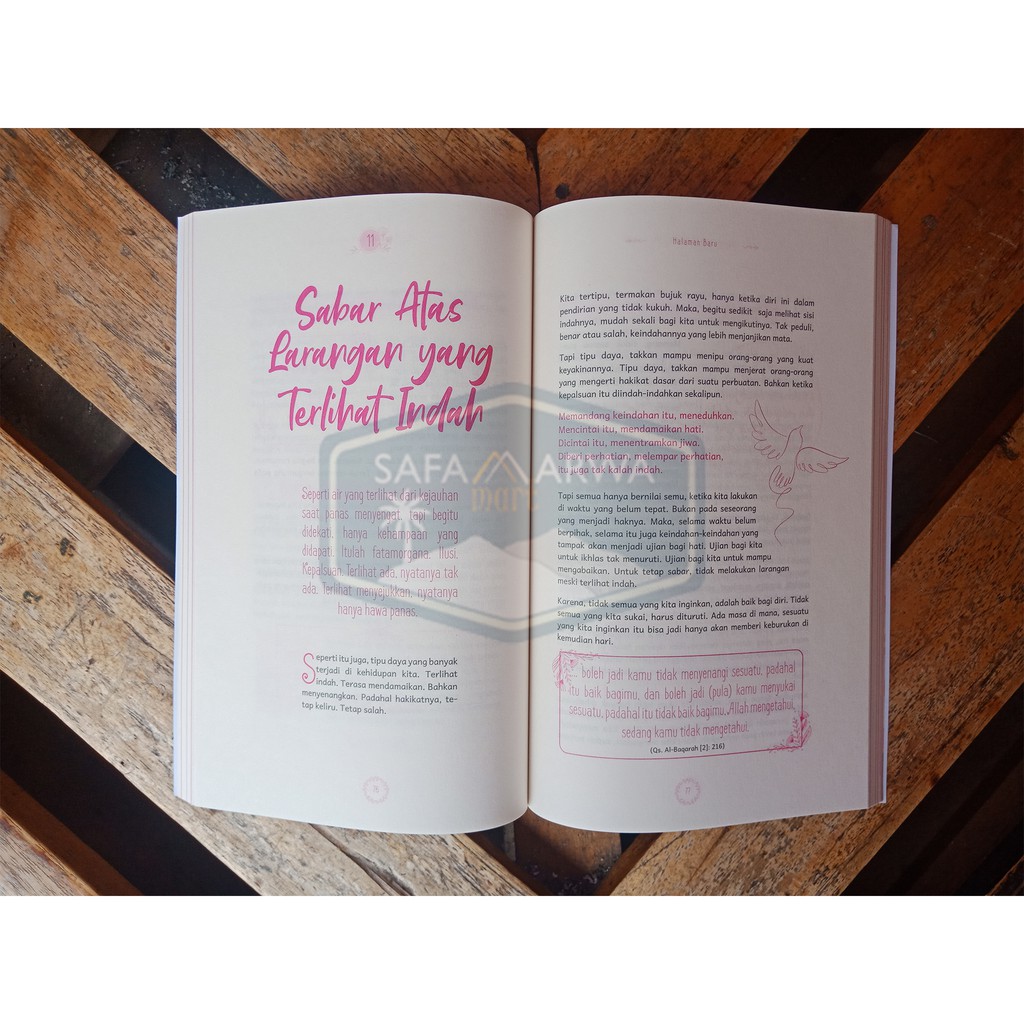 11
Sabar Atas
Larangan yang
Terlihat Indah
Seperti air yang terlihat dari kejauhan
saat panas menyengat, tapi begitu
didekati, hanya kehampaan yang
didapati. Itulah fatamorgana. Ilusi.
Kepalsuan. Terlihat ada, nyatanya tak
ada. Terlihat menyejukkan, nyatanya
hanya hawa panas.
Seperti itu juga, tipu daya yang banyak
terjadi di kehidupan kita. Terlihat
indah. Terasa mendamaikan. Bahkan
menyenangkan. Padahal hakikatnya, te-
tap keliru. Tetap salah.
Halaman Baru
Kita tertipu, termakan bujuk rayu, hanya ketika diri ini dalam
pendirian yang tidak kukuh. Maka, begitu sedikit saja melihat sisi
indahnya, mudah sekali bagi kita untuk mengikutinya. Tak peduli,
benar atau salah, keindahannya yang lebih menjanjikan mata.
Tapi tipu daya, takkan mampu menipu orang-orang yang kuat
keyakinannya. Tipu daya, takkan mampu menjerat orang-orang
yang mengerti hakikat dasar dari suatu perbuatan. Bahkan ketika
kepalsuan itu diindah-indahkan sekalipun.
Memandang keindahan itu, meneduhkan.
Mencintai itu, mendamaikan hati.
Dicintai itu, menentramkan jiwa.
Diberi perhatian, melempar perhatian,
itu juga tak kalah indah.
Tapi semua hanya bernilai semu, ketika kita lakukan
di waktu yang belum tepat. Bukan pada seseorang
yang menjadi haknya. Maka, selama waktu belum
berpihak, selama itu juga keindahan-keindahan yang
tampak akan menjadi ujian bagi hati. Ujian bagi kita
untuk ikhlas tak menuruti. Ujian bagi kita untuk mampu
mengabaikan. Untuk tetap sabar, tidak melakukan larangan
meski terlihat indah.
Karena, tidak semua yang kita inginkan, adalah baik bagi diri. Tidak
semua yang kita sukai, harus dituruti. Ada masa di mana, sesuatu
yang kita inginkan itu bisa jadi hanya akan memberi keburukan di
kemudian hari.
... boleh jadi kamu tidak menyenangi sesuatu, padahal
itu baik bagimu, dan boleh jadi (pula) kamu menyukai
sesuatu, padahal itu tidak baik bagimu. Allah mengetahui,
sedang kamu tidak mengetahui.
(Qs. Al-Baqarah [2]: 216)
SAFA MARWA
mart